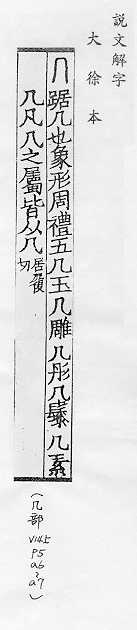 説文解字
大徐本
几踞几也象形周禮五几玉几雕几彤几䰍几素
几凡几之屬皆从几居履切
(几部
p5
a6
a7)